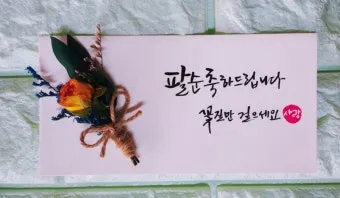 팔순축하드립니다
꽃길만 걸으세요 사랑